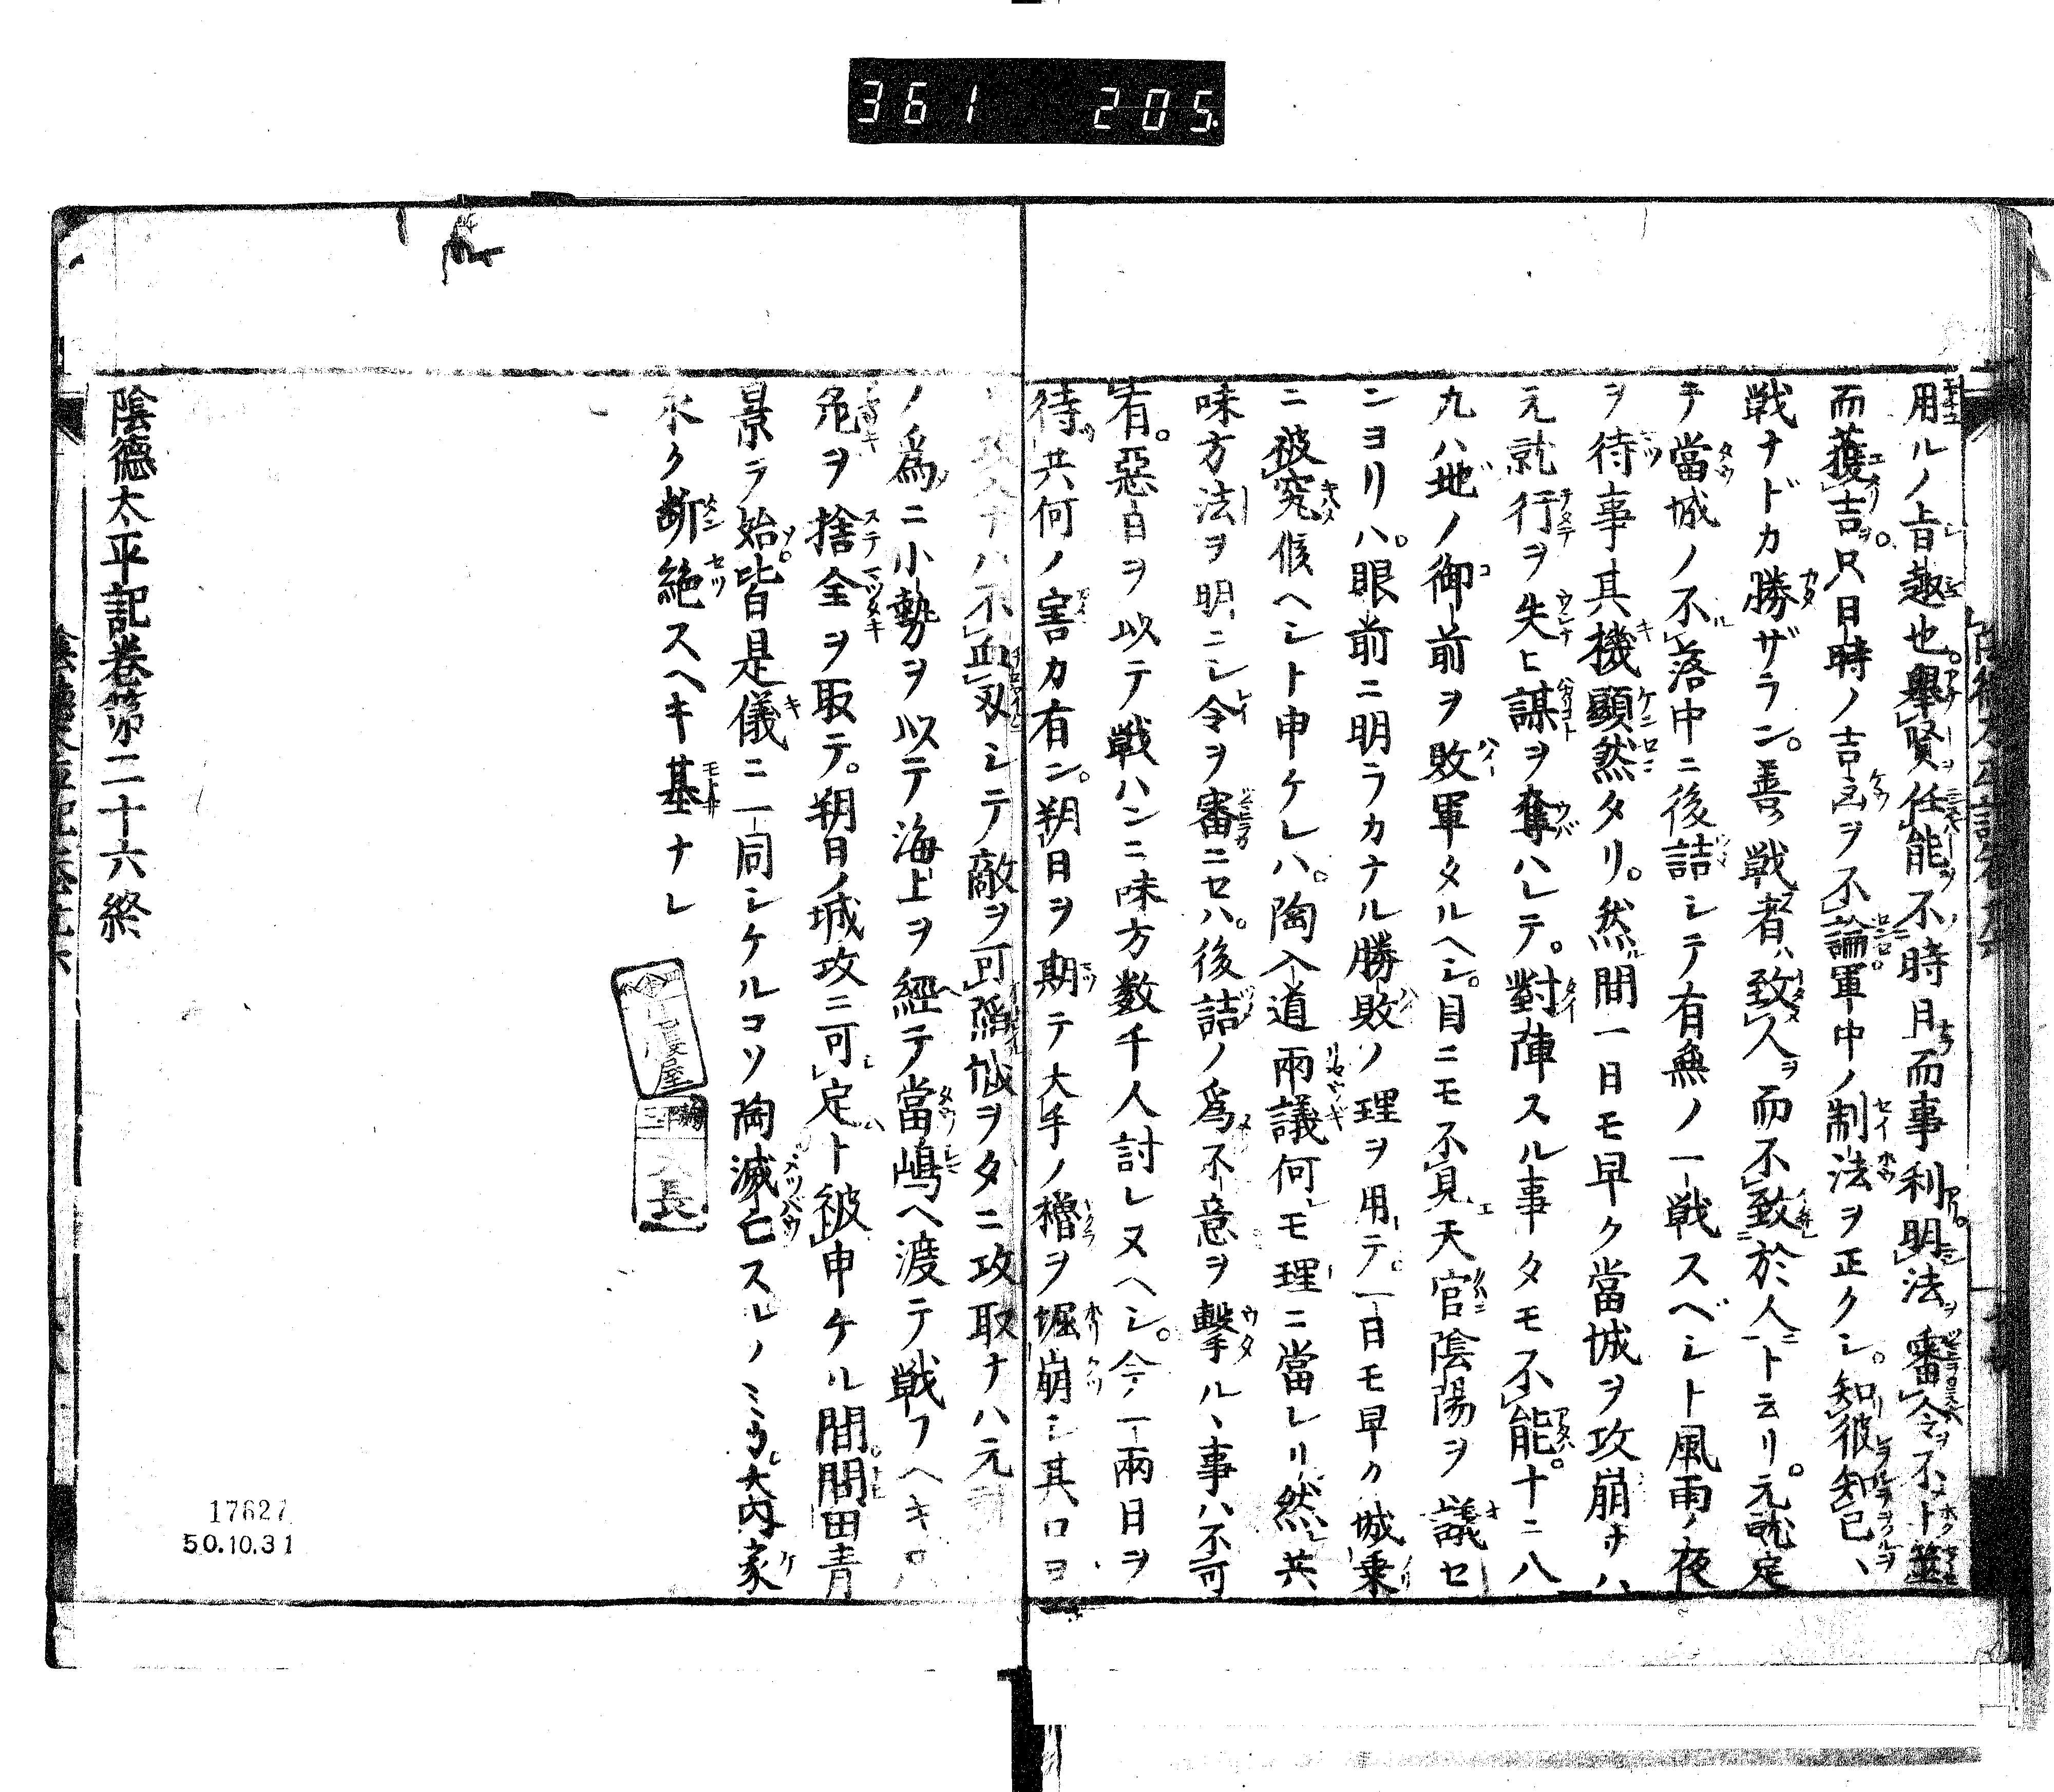 361 205
用ルノ旨趣也。擧賢任能不時日而事利明法審令不卜筮
而獲吉。只日時ノ吉凶ヲ不論軍中ノ制法ヲ正クシ。知彼知己、
戦ナドカ勝ザラン。善戦者ハ致人ヲ而不致於人ニト云リ。元就定
テ當城ノ不落中ニ後詰シテ有無ノ一戦スベシト風雨ノ夜
ヲ待事其機顯然タリ。然間一日モ早ク當城ヲ攻崩サハ
元就行ヲ失ヒ謀ヲ奪ハレテ。對陣スル事タモ不能。十ニ八
九ハ地ノ御前ヲ敗軍タルヘシ。目ニモ不見天官陰陽ヲ議セ
ンヨリハ。眼前ニ明ラカナル勝敗ノ理ヲ用テ。一日モ早ク城乗
ニ被究候ヘシト申ケレハ。陶入道兩議何レモ理ニ當レリ然共
味方法ヲ明ニシ令ヲ審ニセハ。後詰ノ爲不意ヲ擊ル丶事ハ不可
有。惡日ヲ以テ戦ハンニ味方数千人討レヌヘシ。今一兩日ヲ
待共何ノ害カ有ン。朔日ヲ期テ大手ノ櫓ヲ堀崩シ其口ヨ
攻入ナハ不血刃シテ敵ヲ可 城ヲタニ攻取ナハ元就
ノ爲ニ小勢ヲ以テ海上ヲ經テ當嶋ヘ渡テ戦フヘキ
危ヲ捨全ヲ取テ。朔日ノ城攻ニ可定ト被申ケル間。間田青
景ラ始皆是儀ニ一同シケルコソ陶滅亡スルノミ 大内家
永ク断絶スヘキ基ナレ
陰德太平記巻第二十六終
屋
長
17627
50.10.31